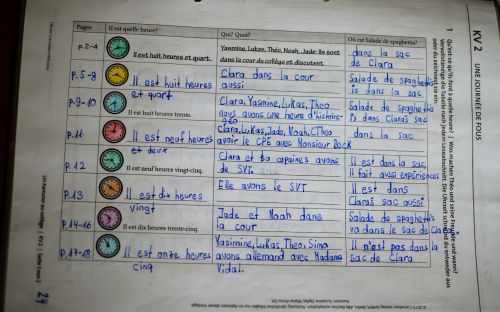 KV 2 UNE JOURNÉE DE FOUS
1 Qu'est-ce qu'ils font à quelle heure? | Was machen Théo und seine Freunde und wann?
Vervollständige die Tabelle nach jedem Leseabschnitt. Die Uhrzeit schreibst du entweder aus
oder du zeichnest sie ein.
Pages Il est quelle heure? Qui? Quoi? Où est Salade de spaghetta?
p.2-4 Il est huit heures et quart. Yasmine, Lukas, Théo, Noah, Jade: Ils sont dans la cour de collège et discutent. dans la sac de Clara
p.5-8 Il est huit heures et quart Clara dans la cour aussi Salade de spaghetta is dans la sac
p.9-10 Il est huit heures trente. Clara, Yasmine, Lukas, Theo nous avons une heure d'histoire-géo Salade de spaghetta is dans Claras sac
p.11 Il est neuf heures et deux Clara, Lukas, Jade, Noah, CTheo avoir le CPE avec Monsiour Beck dans la sac
p.12 Il est neuf heures vingt-cinq. Clara et ta copaines avons de SVT. Il est dans la sac, Il fait aussi expériences
p.13 Il est dix heures vingt Elle avons le SVT Il est dans Claras sac aussi
p.14-16 Il est dix heures trente-cinq. Jade et Noah dans la cour Salade de spaghetta va dans le sac de Clara
p.17-18 Il est onte heures cinq Yasimine, Lukas, Theo, Sima avons allemand avec Madame Vidal. Il n'est pas dans la sac de Clara
Un hamster au collège | KV 2 | Seite 1 von 3
24